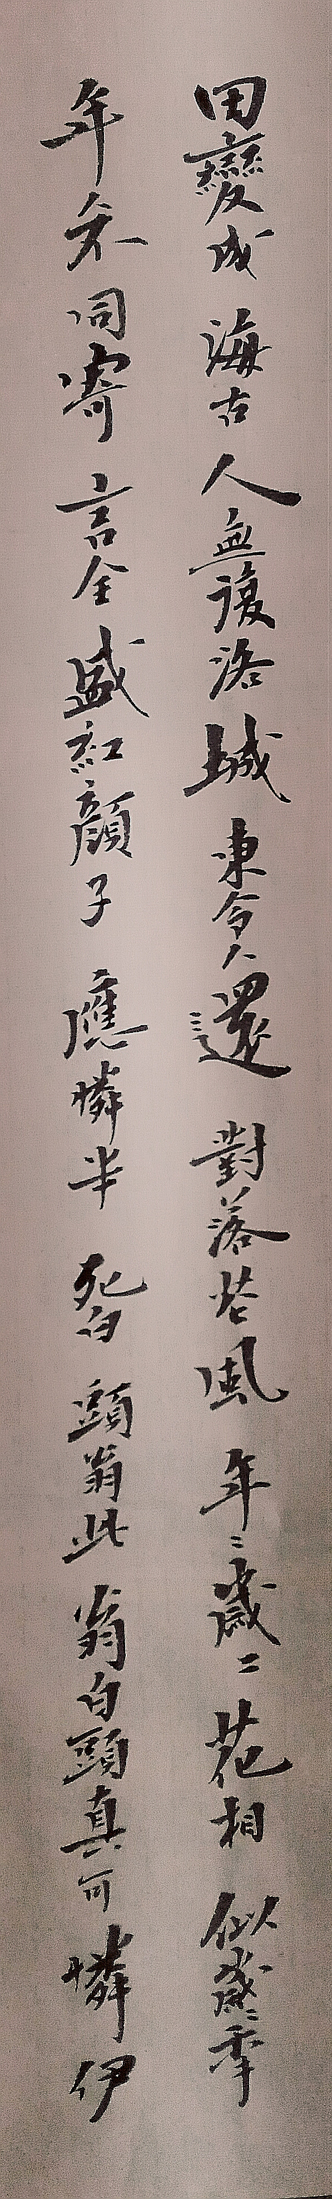 田變成海古人無復洛城東今人還對落花風年〻歲〻花相似歲〻年
年不同寄言全盛紅顏子應憐半死白頭翁此翁白頭真可憐伊